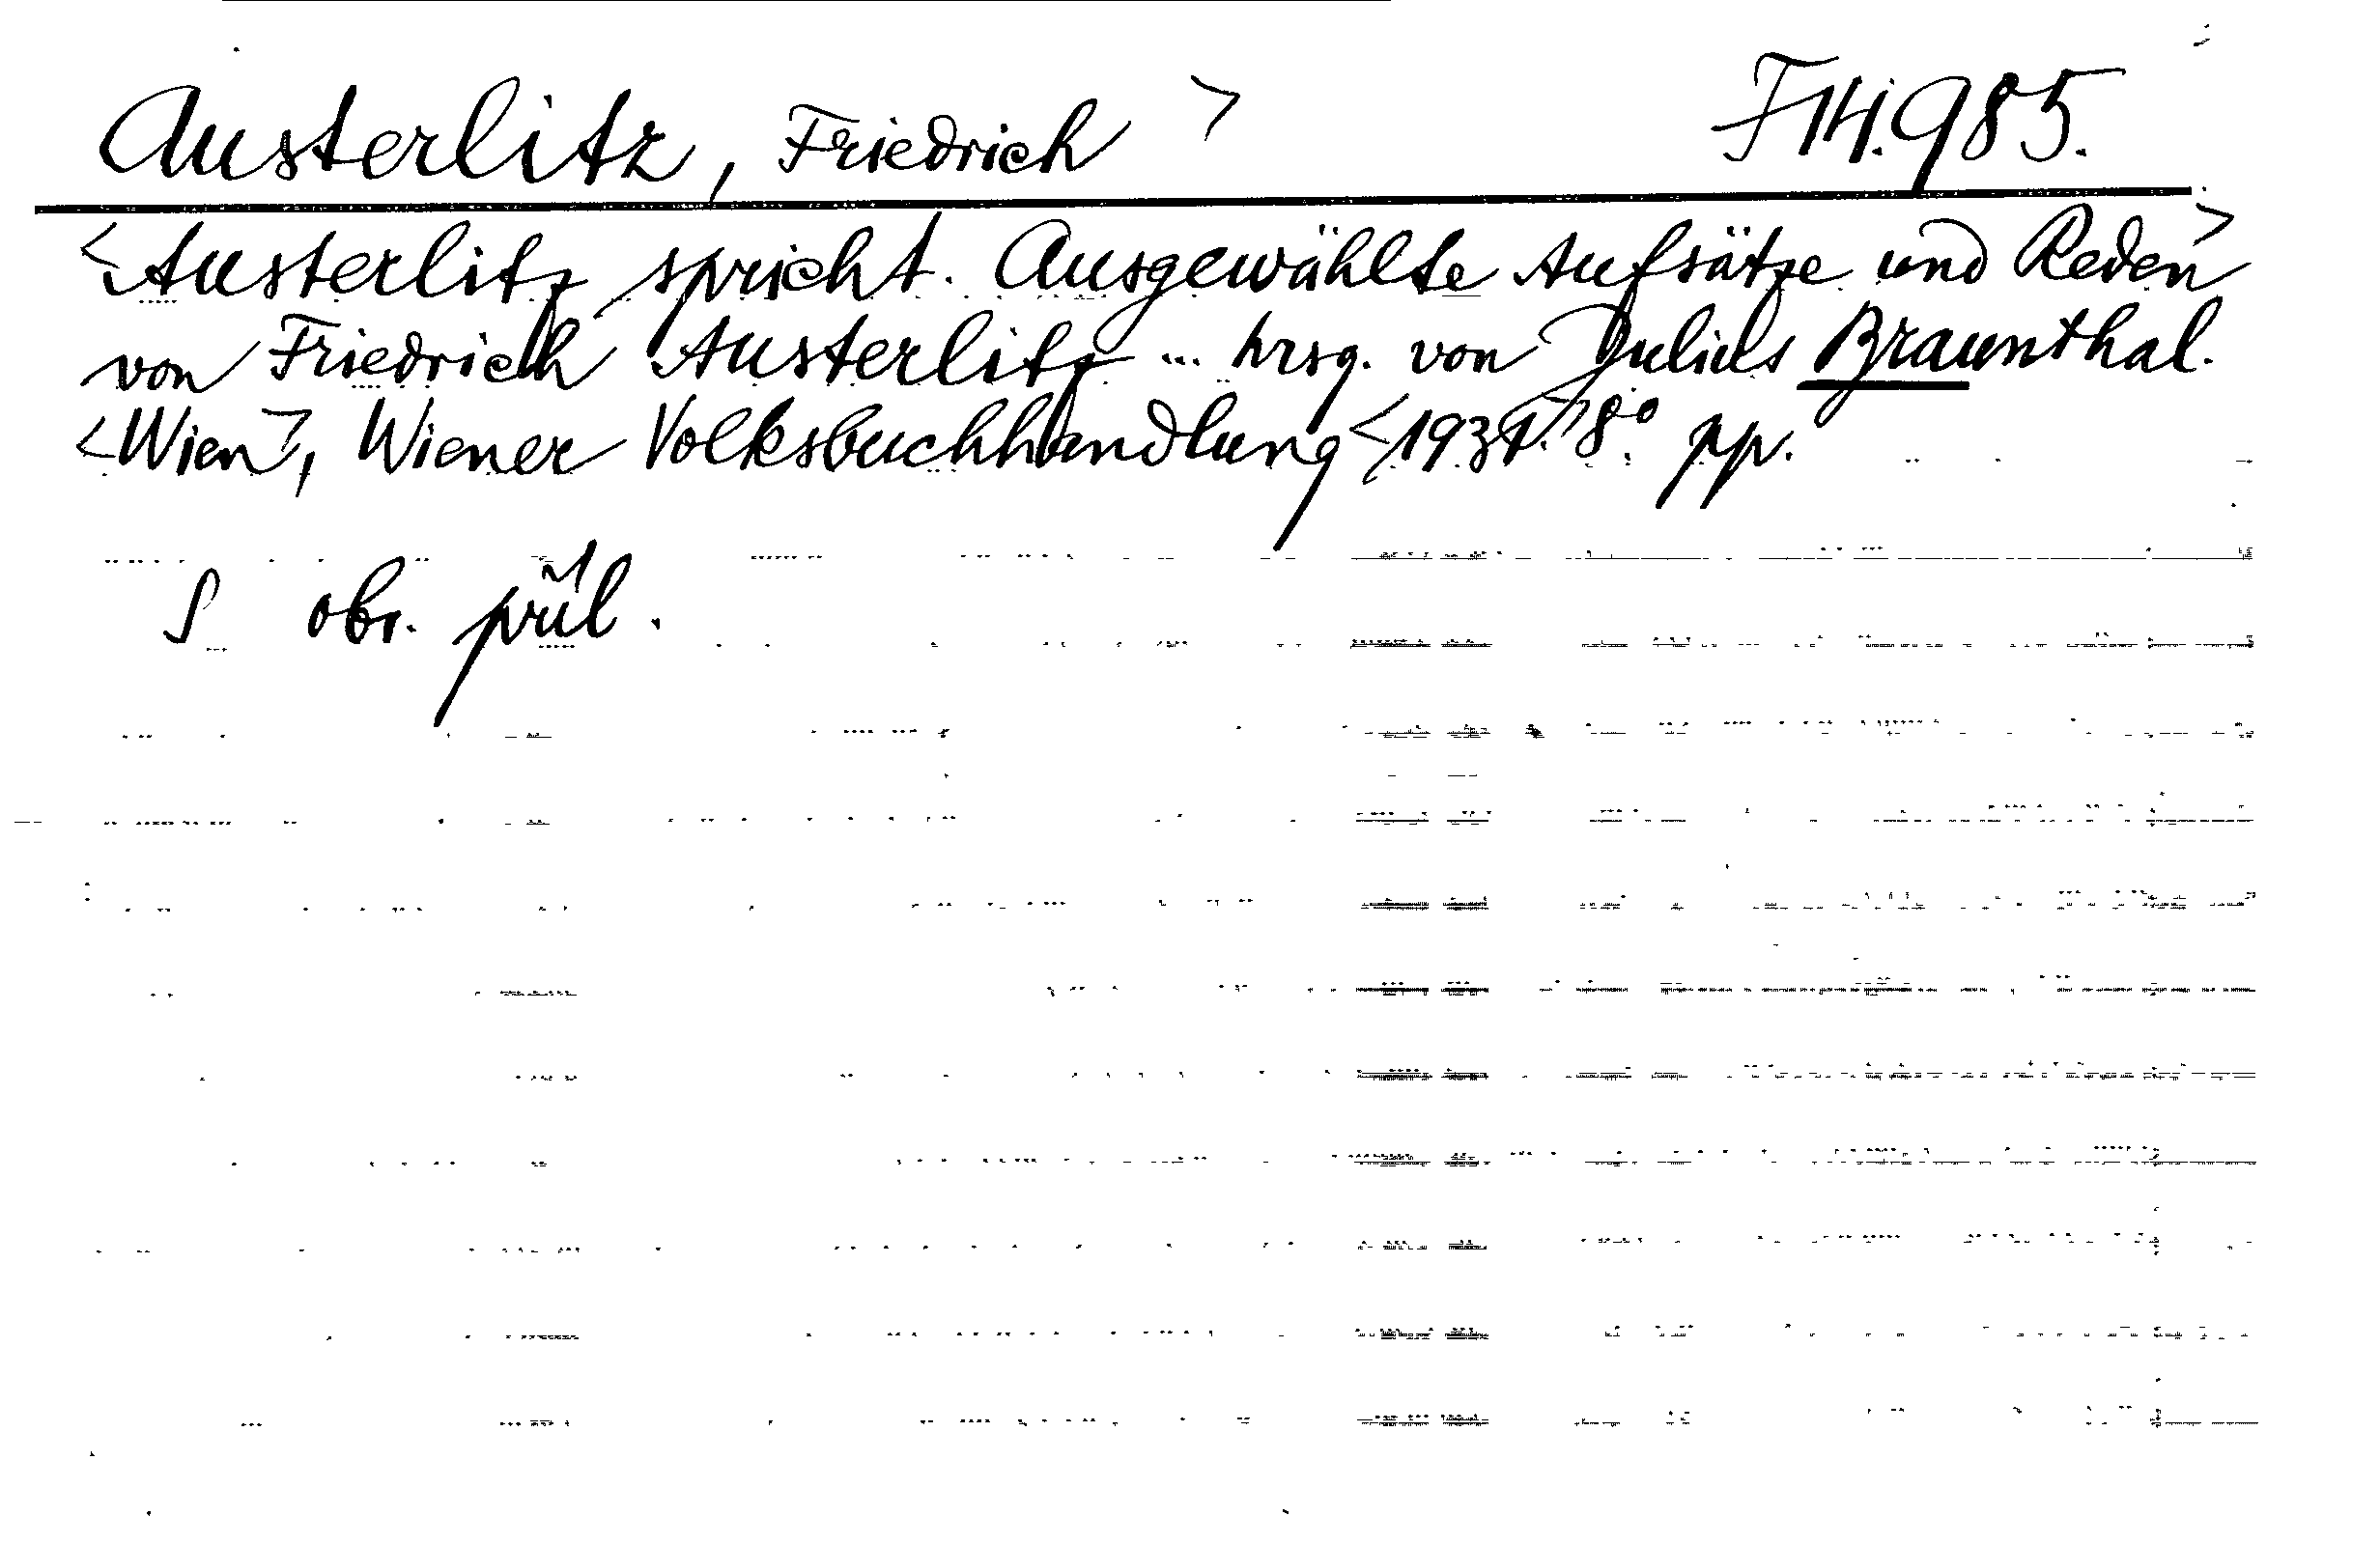 Austerlitz, Friedrich > F 14.985.
<Austerlitz spricht. Ausgewählte Aufsätze und Reden>
von Friedrich Austerlitz ... hrsg. von Julius Braunthal.
<Wien>, Wiener Volksbuchhandlung <1931.> 8°. pp.
S obr. příl.